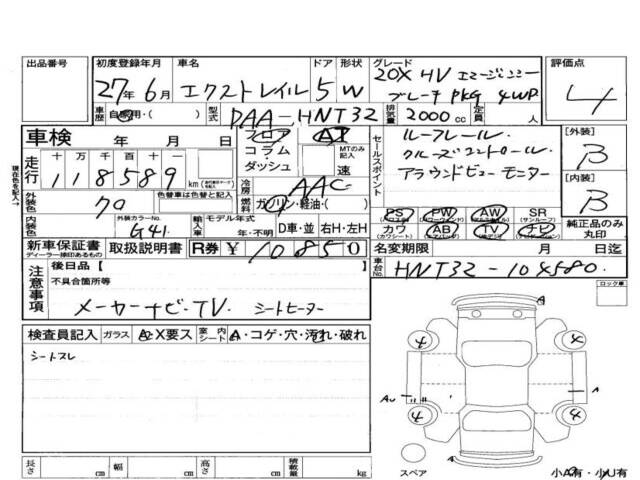 出品番号 初度登録年月 車名 ドア 形状 グレード 評価点
27年6月 エクストレイル 5 W 20X HV エマージェンシー
ブレーキ PKG 4WD 4
車歴 自家用・( ) 型式 DAA-HNT32 排気量 2000cc 定員 人
車検 年 月 日
フロア AT
コラム
ダッシュ
MTのみ記入
速
セールスポイント
ルーフレール
クルーズコントロール
アラウンドビューモニター
[外装]
B
[内装]
B
現在色を記入→
走行 十 万 千 百 十 一
118589 km
冷房 AAC
外装色 クロ 色替車は色替と記入
燃料 ガソリン・軽油・( )
内装色 外装カラーNo. G41
輸入車 モデル年式 年・不明 D車・並 右H・左H
PS PW AW SR
(パワーウィンド) (サンルーフ)
カワ AB TV ナビ
(カワシート) (エアバッグ)
純正品のみ
丸印
新車保証書 取扱説明書 R券 ¥10850
ディーラー捺印あるもの
名変期限 月 日迄
車台No. HNT32-104580
注意事項
後日品[ ]
不具合箇所等
メーカーナビ・TV. シートヒーター
ロック車
検査員記入 ガラス A・X要ス 室内シート A・コゲ・穴・汚れ・破れ
シートスレ
A
4 4
AU A
4 4
スペア
A
小A有・小U有
長さ cm 幅 cm 高さ cm 積載量 kg